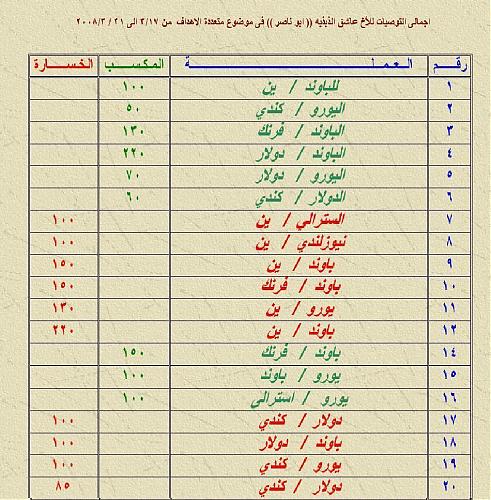 اجمالى التوصيات للأخ عاشق الذبذبه (( ابو ناصر )) فى موضوع متعددة الاهداف من ٣/١٧ الى ٢١ / ٣ / ٢٠٠٨
رقم العملة المكسب الخسارة
١ للباوند / ين ١٠٠
٢ اليورو / كندي ٥٠
٣ الباوند / فرنك ١٣٠
٤ الباوند / دولار ٢٢٠
٥ اليورو / دولار ٧٠
٦ الدولار / كندي ٦٠
٧ السترالي / ين ١٠٠
٨ نيوزلندي / ين ١٠٠
٩ باوند / ين ١٥٠
١٠ باوند / فرنك ١٥٠
١١ يورو / ين ١٣٠
١٢ باوند / ين ٢٢٠
١٤ باوند / فرنك ١٥٠
١٥ يورو / باوند ١٠٠
١٦ يورو / استرالى ١٠٠
١٧ دولار / كندي ١٠٠
١٨ باوند / دولار ١٠٠
١٩ يورو / كندي ١٠٠
٢٠ دولار / كندي ٨٥